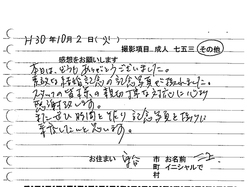 H30年10月2日(火)
撮影項目 成人 七五三 その他
感想をお願いします
本日は、ありがとうございました。
結婚記念の記念写真が撮れました。
スタッフの皆様の親切丁寧な対応に心より
感謝致します。
またぜひ時間を作り記念写真を撮りに
来たいと思います。
お住まい 市 お名前
町 イニシャルで
村